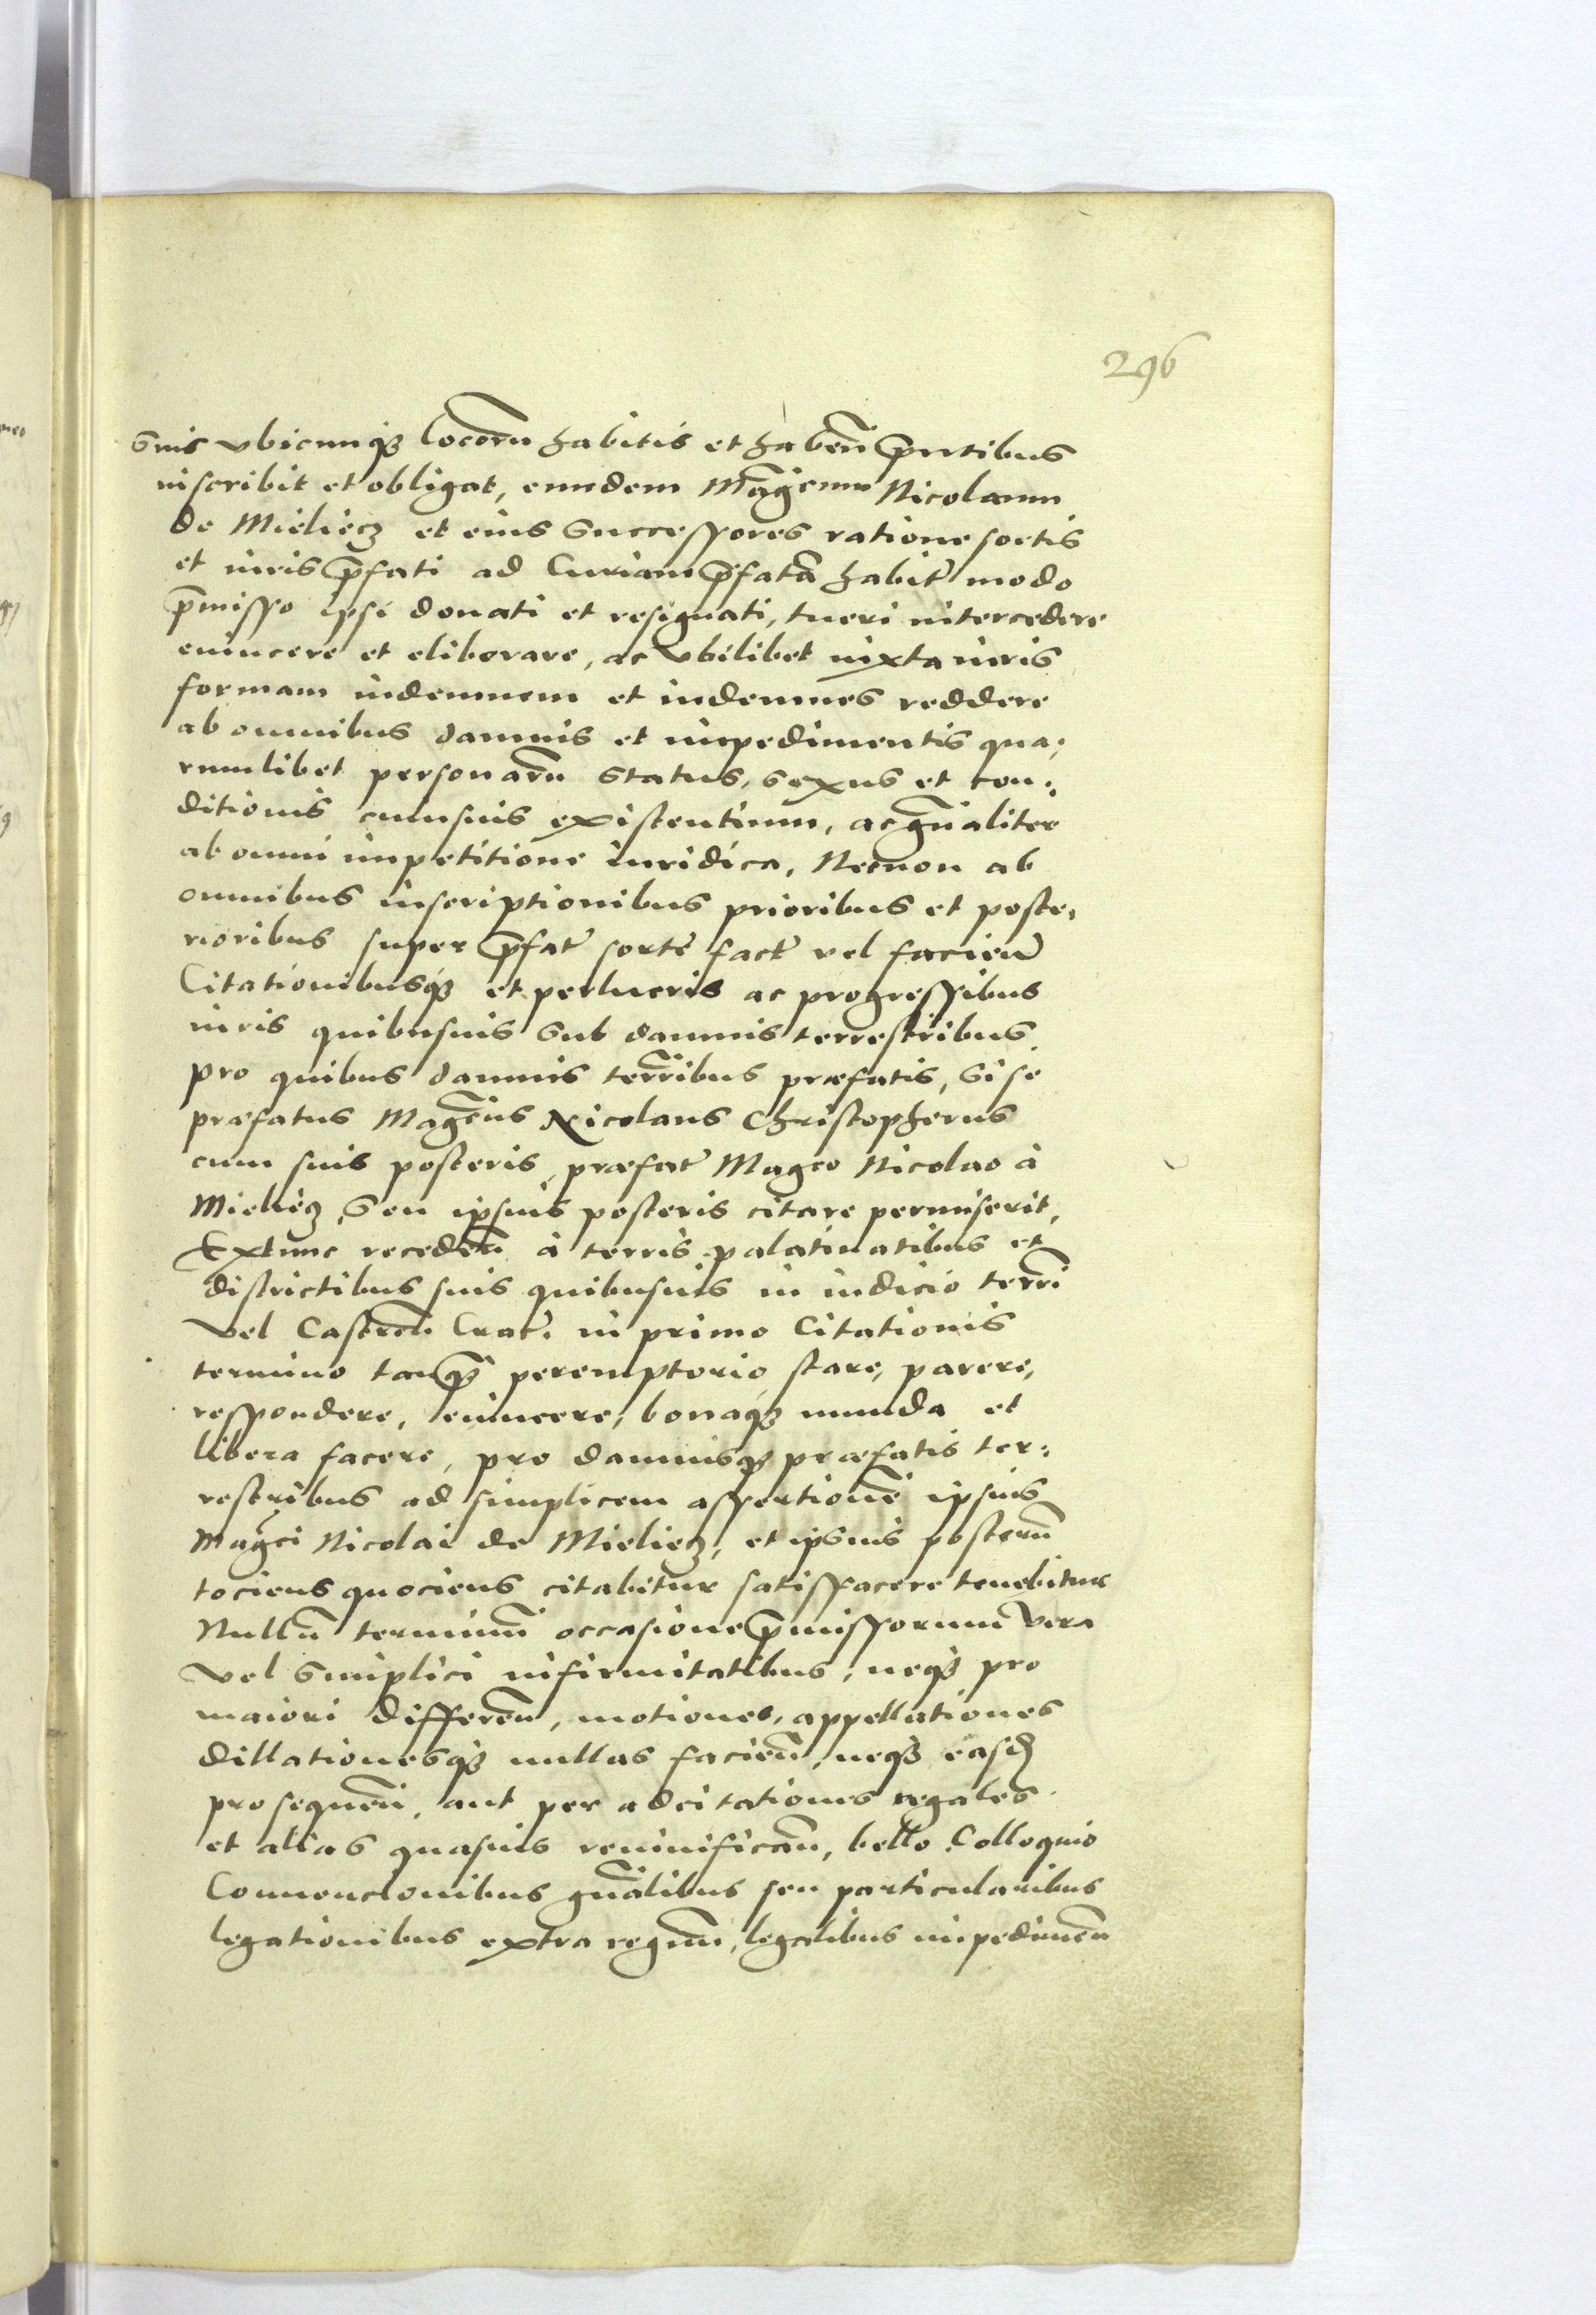 296
suis vbicunq₃ locorū habitis et haben̄ p̄ntibus
inscribit et obligat, eundem Mag̃cum Nicolaum
de Mieliecz et eius Successores ratione sortis
et iuris p̄fati ad Curiam p̄fatā habit̃ modo
p̄misso ipsi donati et resignati, tueri intercedere
euincere et eliberare, ac vbilibet iuxta iuris
formam indemnem et indemnes reddere
ab omnibus damnis et impedimentis qua:
rumlibet personarū status, sexus et con:
ditionis cuiusuis existentium, ac gn̄aliter
ab omni impetitione iuridica, Necnon ab
omnibus inscriptionibus prioribus et poste:
rioribus super p̄fat̃ sortē fact̃ vel facien̄
Citationibusq₃ et perlucris ac progressibus
iuris quibusuis sub damnis terrestribus
pro quibus damnis terr̄ibus præfatis, Si se
præfatus Mag̃cus Nicolaus Christopherus
cum suis posteris, præfat̃ Mag̃co Nicolao à
Mieliecz, Seu ipsius posteris citare permiserit,
Extunc receden̄ à terris palatinatibus et
districtibus suis quibusuis in iudicio terrī
vel Castren̄ Crac̃. in primo Citationis
termino tanq̄ꝫ peremptorio stare, parere,
respondere, euincere, bonaq₃ munda et
libera facere, pro damnisq₃ præfatis ter:
restribus ad simplicem assertionē ipsius
Mag̃ci Nicolai de Mieliecz, et ipsius posterū
tociens quociens citabitur satisffacere tenebitur
Nullū terminū occasione p̄missorum vera
vel Simplici infirmitatibus, neq₃ pro
maiori differen̄, motiones, appellationes
dillationesq₃ nullas facien̄, neq₃ easd̄
prosequen̄, aut per adcitationes regales
et alias quasuis reuiuifican̄, bello Colloquio
Conuencionibus gn̄alibus seu particularibus
legationibus extra regnū, legalibus impedimen̄